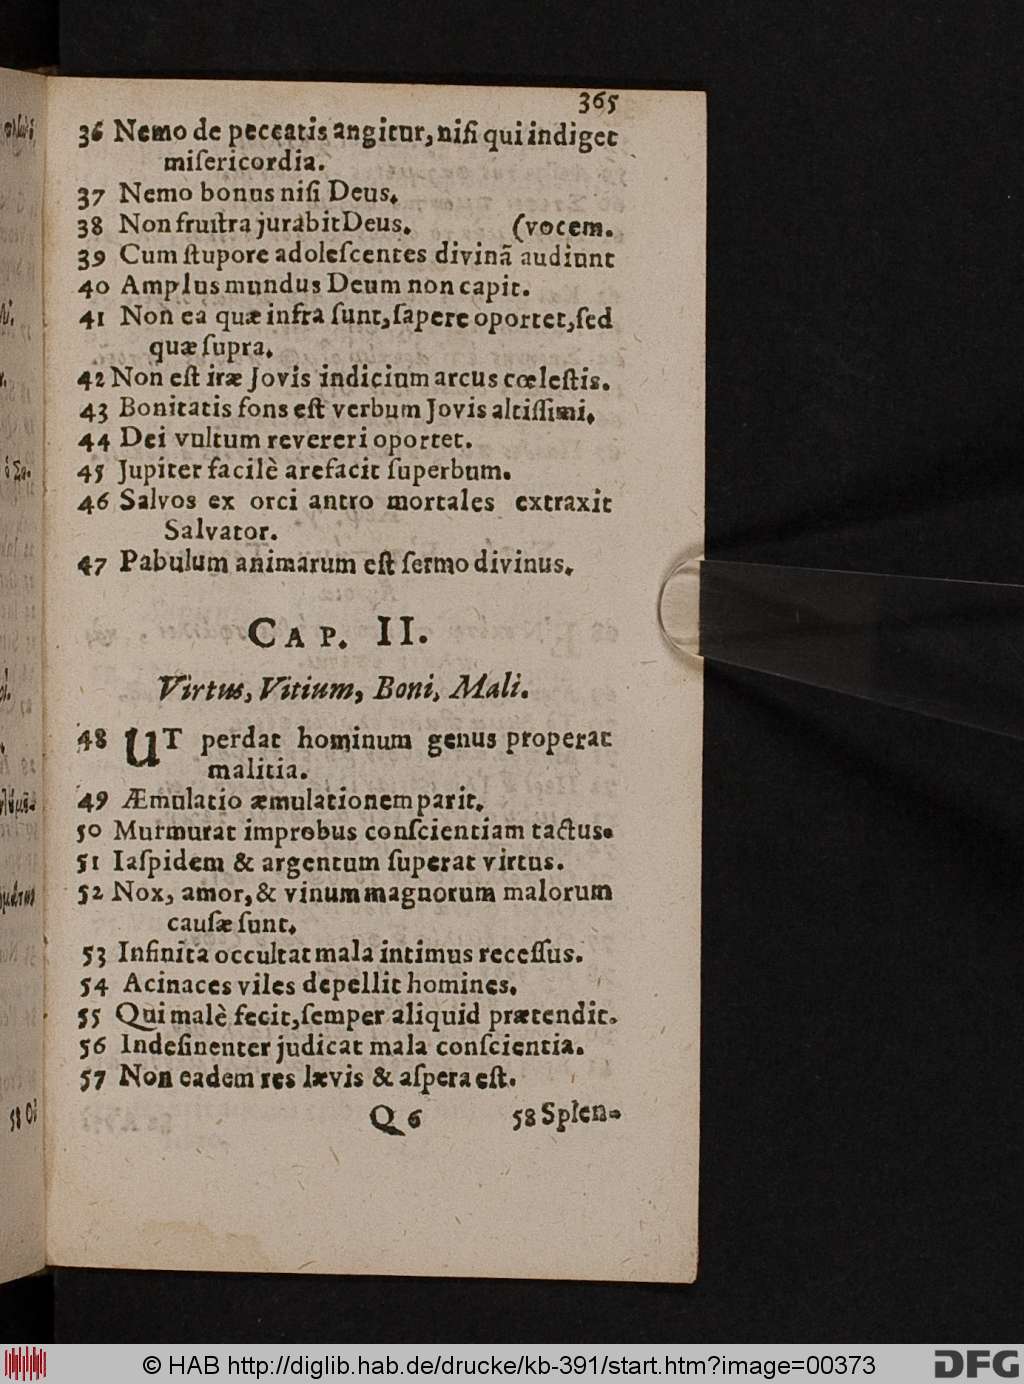 365
36 Nemo de peccatis angitur, niſi qui indiget
miſericordia.
37 Nemo bonus niſi Deus.
38 Non fruſtra jurabit Deus. (vocem.
39 Cum ſtupore adoleſcentes divinã audiunt
40 Amplus mundus Deum non capit.
41 Non ea quæ infra ſunt, ſapere oportet, ſed
quæ ſupra.
42 Non eſt iræ Jovis indicium arcus cœleſtis.
43 Bonitatis fons eſt verbum Jovis altiſſimi.
44 Dei vultum revereri oportet.
45 Jupiter facilè arefacit ſuperbum.
46 Salvos ex orci antro mortales extraxit
Salvator.
47 Pabulum animarum eſt ſermo divinus.
CAP. II.
Virtus, Vitium, Boni, Mali.
48 UT perdat hominum genus properat
malitia.
49 Æmulatio æmulationem parit.
50 Murmurat improbus conſcientiam tactus.
51 Iaſpidem & argentum ſuperat virtus.
52 Nox, amor, & vinum magnorum malorum
cauſæ ſunt.
53 Infinita occultat mala intimus receſſus.
54 Acinaces viles depellit homines.
55 Qui malè fecit, ſemper aliquid prætendit.
56 Indeſinenter judicat mala conſcientia.
57 Non eadem res lævis & aſpera eſt.
Q 6 58 Splen-
© HAB http://diglib.hab.de/drucke/kb-391/start.htm?image=00373
DFG